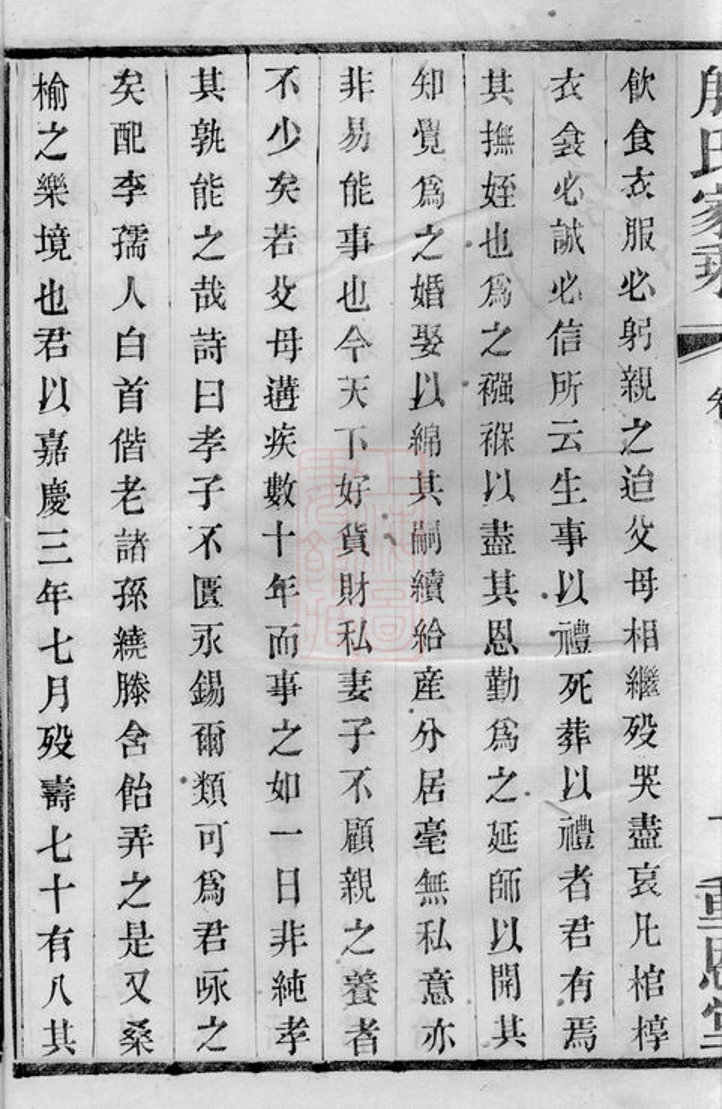 殷氏家乘
卷
十
重恩堂
飲食衣服必躬親之迨父母相繼歿哭盡哀凡棺椁
衣衾必誠必信所云生事以禮死葬以禮者君有焉
其撫姪也為之襁褓以盡其恩勤為之延師以開其
知覺為之婚娶以綿其嗣續給產分居毫無私意亦
非易能事也今天下好貨財私妻子不顧親之養者
不少矣若父母遘疾數十年而事之如一日非純孝
其孰能之哉詩曰孝子不匱永錫爾類可為君咏之
矣配李孺人白首偕老諸孫繞膝含飴弄之是又桑
榆之樂境也君以嘉慶三年七月歿壽七十有八其